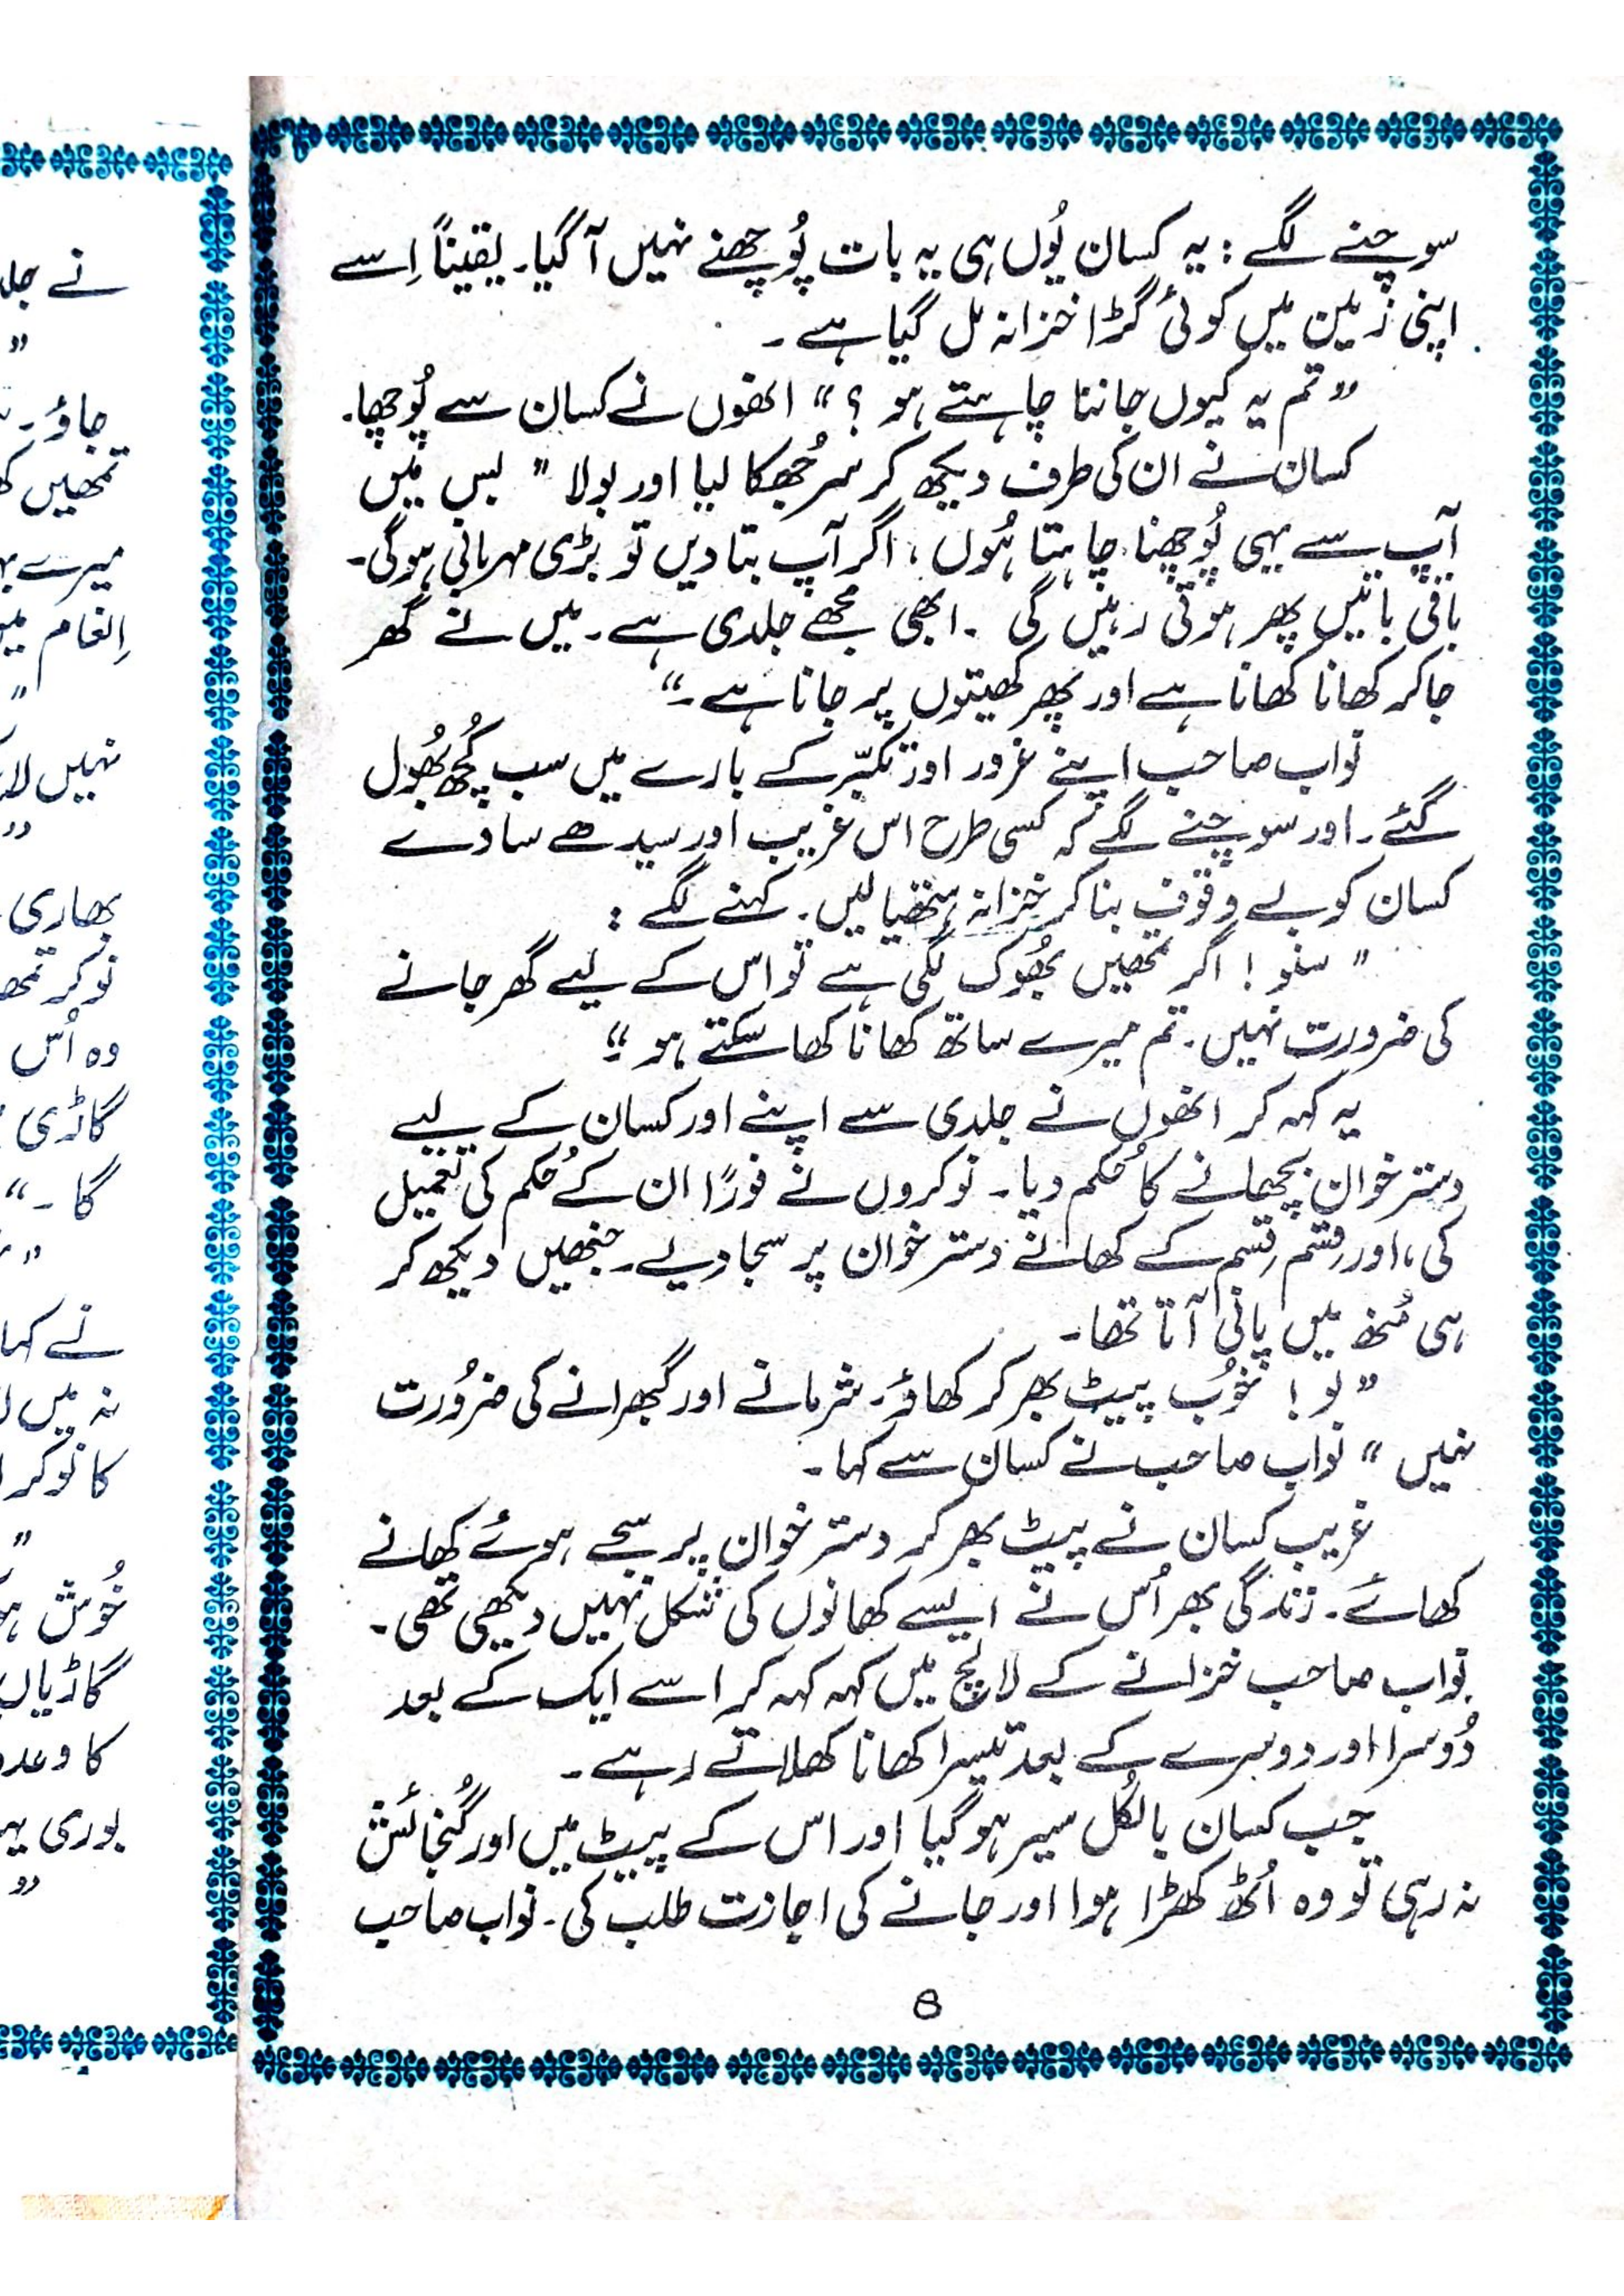 سوچنے لگے : یہ کسان یُوں ہی یہ بات پُوچھنے نہیں آ گیا۔ یقیناً اِسے
اپنی زمین میں کوئی گڑا خزانہ مل گیا ہے ۔
”تم یہ کیوں جاننا چاہتے ہو ؟“ انھوں نے کسان سے پُوچھا۔
کسان نے ان کی طرف دیکھ کر سر جُھکا لیا اور بولا ” بس میں
آپ سے یہی پُوچھنا چاہتا ہُوں ، اگر آپ بتا دیں تو بڑی مہربانی ہوگی۔
باقی باتیں پھر ہوتی رہیں گی ۔ ابھی مجھے جلدی ہے۔ میں نے گھر
جا کر کھانا کھانا ہے اور پھر کھیتوں پر جانا ہے۔“
نواب صاحب اپنے غرور اور تکبّر کے بارے میں سب کُچھ بُھول
گئے۔ اور سوچنے لگے کہ کسی طرح اس غریب اور سیدھے سادے
کسان کو بے وقوف بنا کر خزانہ ہتھیا لیں۔ کہنے لگے :
” سنو ! اگر تمھیں بُھوک لگی ہے تو اس کے لیے گھر جانے
کی ضرورت نہیں۔ تم میرے ساتھ کھانا کھا سکتے ہو۔“
یہ کہہ کر انھوں نے جلدی سے اپنے اور کسان کے لیے
دسترخوان بچھانے کا حُکم دیا۔ نوکروں نے فورًا ان کے حُکم کی تعمیل
کی، اور قِسم قِسم کے کھانے دسترخوان پر سجا دیے۔ جنھیں دیکھ کر
ہی مُنھ میں پانی آتا تھا۔
”لو ! خُوب پیٹ بھر کر کھاؤ۔ شرمانے اور گھبرانے کی ضرُورت
نہیں “ نواب صاحب نے کسان سے کہا۔
غریب کسان نے پیٹ بھر کر دسترخوان پر سجے ہوئے کھانے
کھائے۔ زندگی بھر اُس نے ایسے کھانوں کی شکل نہیں دیکھی تھی۔
نواب صاحب خزانے کے لالچ میں کہہ کہہ کر اسے ایک کے بعد
دُوسرا اور دوسرے کے بعد تیسرا کھانا کھلاتے رہے۔
جب کسان بالکُل سیر ہو گیا اور اس کے پیٹ میں اور گُنجائش
نہ رہی تو وہ اُٹھ کھڑا ہوا اور جانے کی اجازت طلب کی۔ نواب صاحب
8
جاؤ۔
تمھیں
میرے
اِنعام
نہیں
بھاری
نوکر
وہ اُس
گاڑی
گا۔“
نے کہا
نہ میں
کا نوکر
خُوش
گاڑیاں
کا وعدہ
بوری